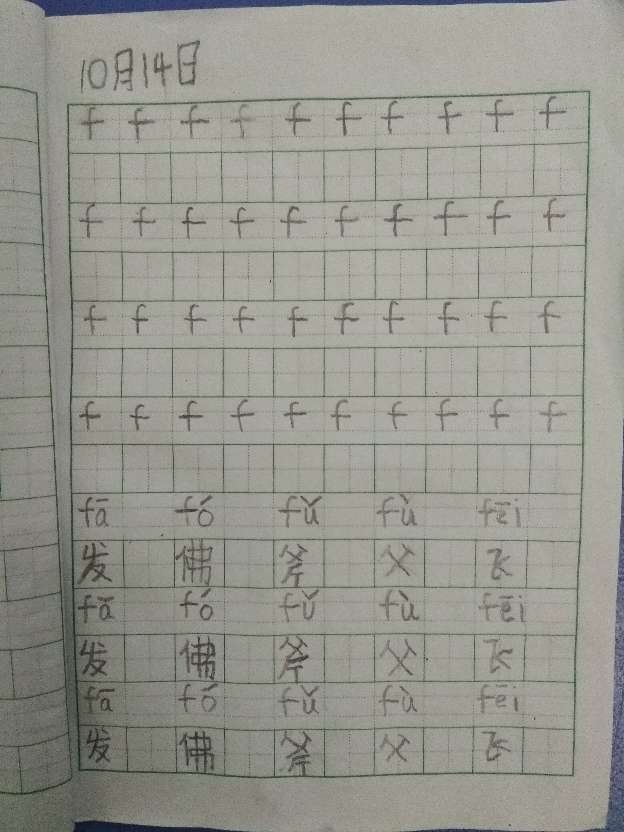 10月14日
f f f f f f f f f f
f f f f f f f f f f
f f f f f f f f f f
f f f f f f f f f f
fā fó fǔ fù fēi
发 佛 斧 父 飞
fā fó fǔ fù fēi
发 佛 斧 父 飞
fā fó fǔ fù fēi
发 佛 斧 父 飞